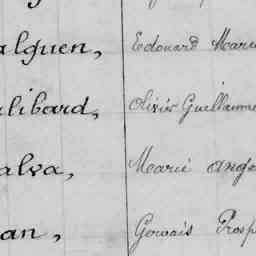 alguen, Edouard Marie
alibard, Olivier Guillaume
alva, Marie Ange
an, Gervais Prosp